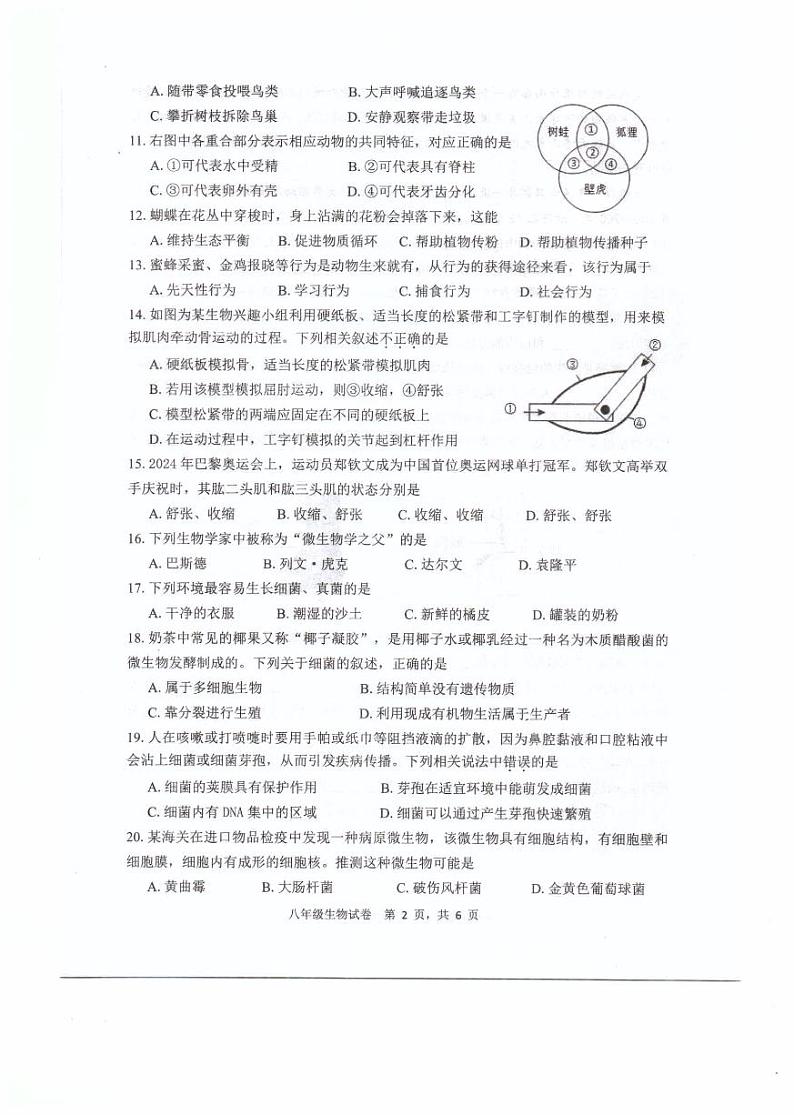 A. 随带零食投喂鸟类 B. 大声呼喊追逐鸟类
C. 攀折树枝拆除鸟巢 D. 安静观察带走垃圾
11. 右图中各重合部分表示相应动物的共同特征，对应正确的是
A. ①可代表水中受精 B. ②可代表具有脊柱
C. ③可代表卵外有壳 D. ④可代表牙齿分化
树蛙 ① 狐狸
② ③ ④
壁虎
12. 蝴蝶在花丛中穿梭时，身上沾满的花粉会掉落下来，这能
A. 维持生态平衡 B. 促进物质循环 C. 帮助植物传粉 D. 帮助植物传播种子
13. 蜜蜂采蜜、金鸡报晓等行为是动物生来就有，从行为的获得途径来看，该行为属于
A. 先天性行为 B. 学习行为 C. 捕食行为 D. 社会行为
14. 如图为某生物兴趣小组利用硬纸板、适当长度的松紧带和工字钉制作的模型，用来模
拟肌肉牵动骨运动的过程。下列相关叙述不正确的是
A. 硬纸板模拟骨，适当长度的松紧带模拟肌肉
B. 若用该模型模拟屈肘运动，则③收缩，④舒张
C. 模型松紧带的两端应固定在不同的硬纸板上
D. 在运动过程中，工字钉模拟的关节起到杠杆作用
① ② ③ ④
15. 2024 年巴黎奥运会上，运动员郑钦文成为中国首位奥运网球单打冠军。郑钦文高举双
手庆祝时，其肱二头肌和肱三头肌的状态分别是
A. 舒张、收缩 B. 收缩、舒张 C. 收缩、收缩 D. 舒张、舒张
16. 下列生物学家中被称为“微生物学之父”的是
A. 巴斯德 B. 列文·虎克 C. 达尔文 D. 袁隆平
17. 下列环境最容易生长细菌、真菌的是
A. 干净的衣服 B. 潮湿的沙土 C. 新鲜的橘皮 D. 罐装的奶粉
18. 奶茶中常见的椰果又称“椰子凝胶”，是用椰子水或椰乳经过一种名为木质醋酸菌的
微生物发酵制成的。下列关于细菌的叙述，正确的是
A. 属于多细胞生物 B. 结构简单没有遗传物质
C. 靠分裂进行生殖 D. 利用现成有机物生活属于生产者
19. 人在咳嗽或打喷嚏时要用手帕或纸巾等阻挡液滴的扩散，因为鼻腔黏液和口腔粘液中
会沾上细菌或细菌芽孢，从而引发疾病传播。下列相关说法中错误的是
A. 细菌的荚膜具有保护作用 B. 芽孢在适宜环境中能萌发成细菌
C. 细菌内有 DNA 集中的区域 D. 细菌可以通过产生芽孢快速繁殖
20. 某海关在进口物品检疫中发现一种病原微生物，该微生物具有细胞结构，有细胞壁和
细胞膜，细胞内有成形的细胞核。推测这种微生物可能是
A. 黄曲霉 B. 大肠杆菌 C. 破伤风杆菌 D. 金黄色葡萄球菌
八年级生物试卷 第 2 页，共 6 页